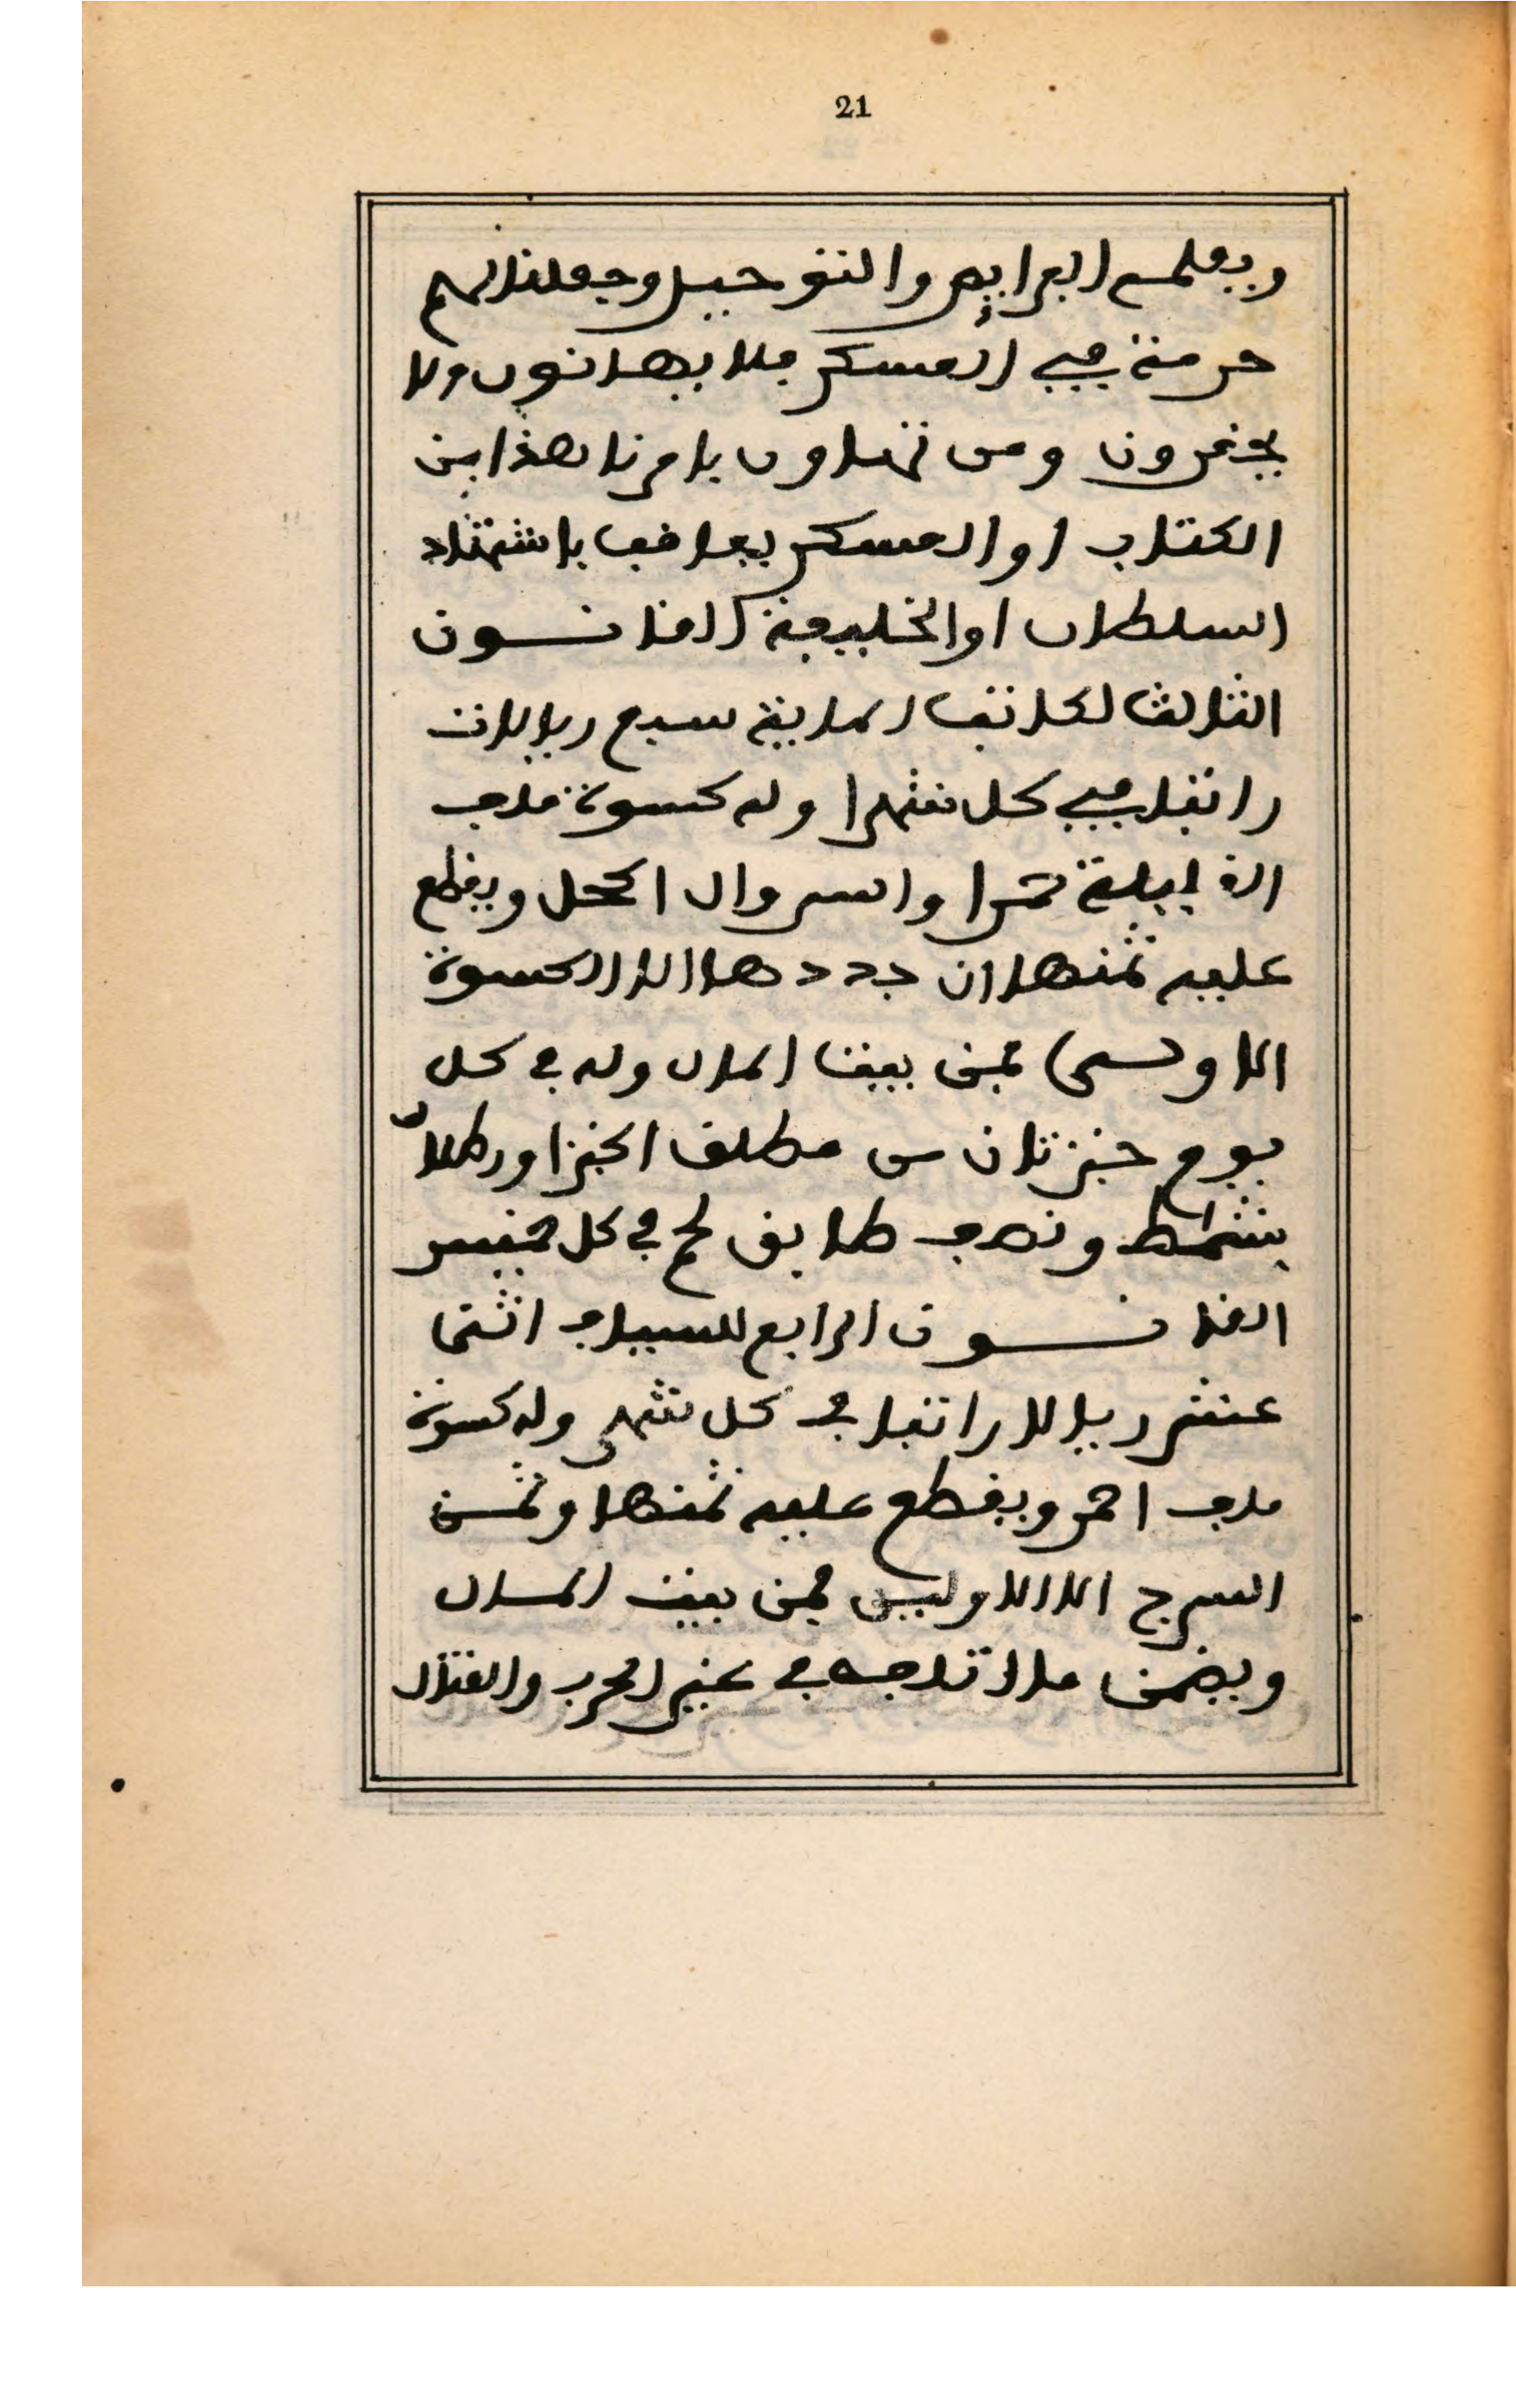 21
ويعلمهم البرايض والتوحيد وجعلنا لهم
حرمة في العسكر فلا يهانون ولا
يحقرون ومن تهاون بامرنا هذا من
الكتاب او العسكر يعاقب باشتهاد
السلطان او الخليفة القانـــون
الثالث لكاتب المدينة سبع ريالات
راتبا في كل شهرا وله كسوة ملف
القايلة حمرا والسروال اكحل ويقطع
عليه ثمنها ان جددها الا الكسوة
الاولى فمن بيت المال وله في كل
يوم خبزتان من مطلق الخبز او رطلا
بشماط ونصف طابق لحم في كل خميس
القانـــون الرابع للسياف اثنى
عشر ريالا راتبا في كل شهر وله كسوة
ملف احمر ويقطع عليه ثمنها وثمن
السرج الا الاوليين فمن بيت المال
ويضمن ما اتلفه في غير الحرب والقتال